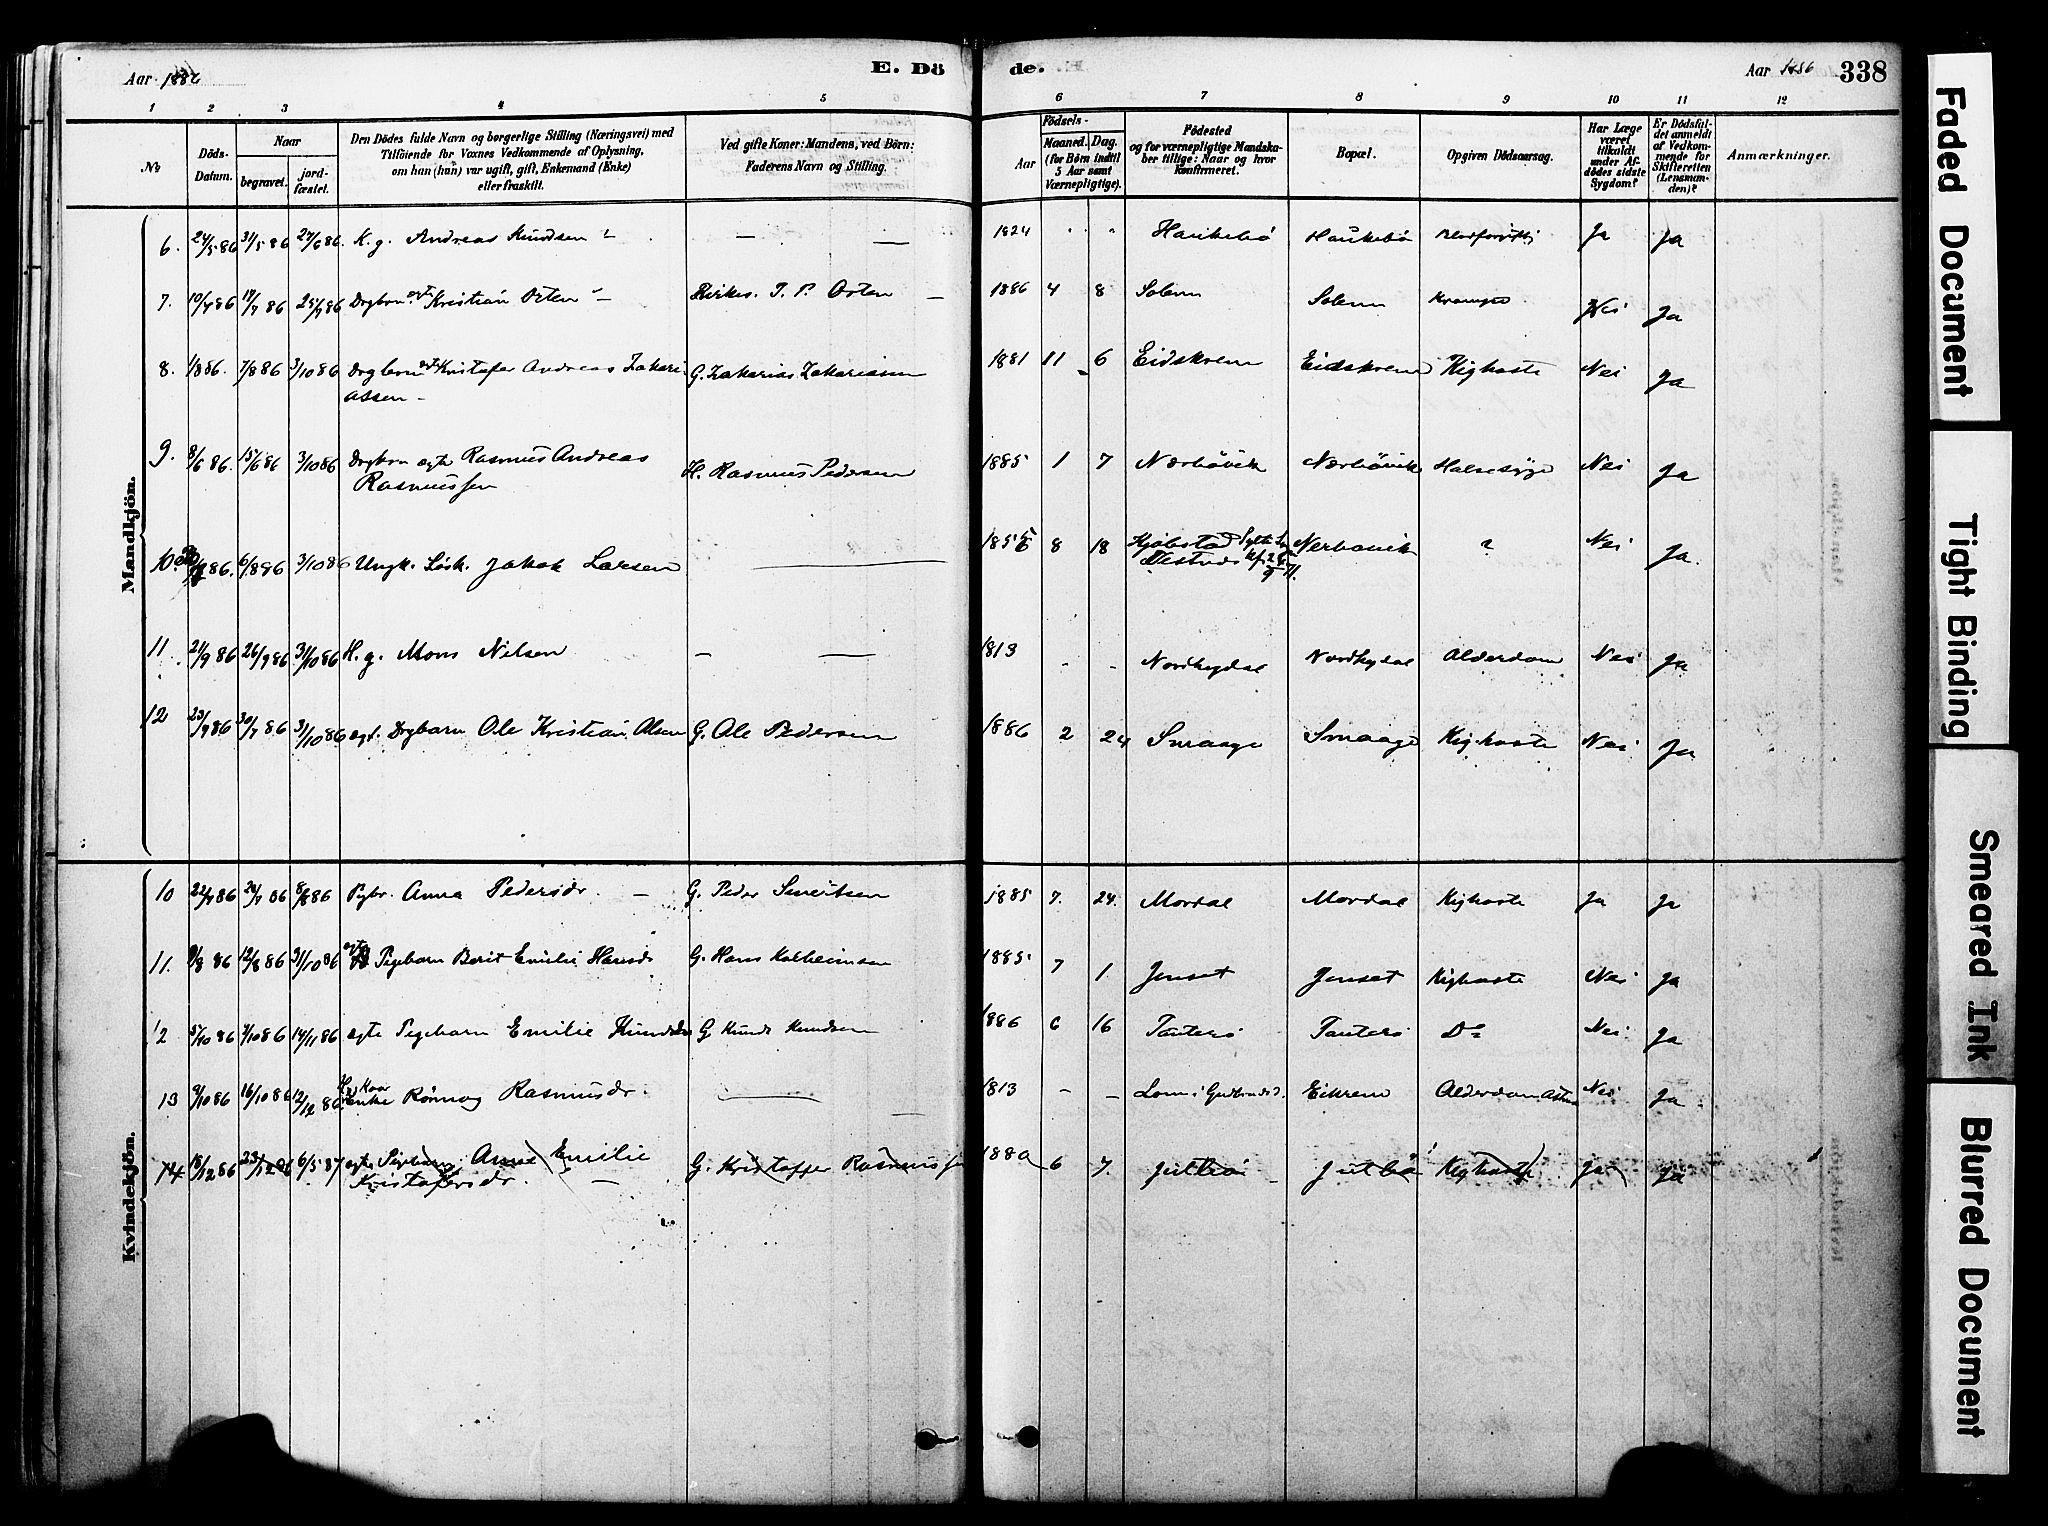 Aar 1886
E. Dö
de.
Aar 1886
338
1 2 3 4 5 6 7 8 9 10 11 12
№
Döds-Datum.
Naar
begravet.
jord-fæstet.
Den Dödes fulde Navn og borgerlige Stilling (Næringsvei) med
Tilföiende for Voxnes Vedkommende af Oplysning,
om han (hun) var ugift, gift, Enkemand (Enke)
eller fraskilt.
Ved gifte Koner: Mandens, ved Börn:
Faderens Navn og Stilling.
Födsels-
Aar
Maaned. Dag.
(for Börn indtil
5 Aar samt
Værnepligtige).
Födested
og for værnepligtige Mandska-
ber tillige: Naar og hvor
konfirmeret.
Bopæl.
Opgiven Dödsaarsag.
Har Læge
været
tilkaldt
under Af-
dödes sidste
Sygdom?
Er Dödsfal-
det anmeldt
af Vedkom-
mende for
Skifteretten
(Lensman-
den)?
Anmærkninger.
Mandkjön.
6. 24/5 86 31/5 86 27/6 86 K. g. Andreas Knudsen — — 1824 " " Haukebö Haukebö Ja Ja
7. 10/7 86 17/7 86 25/7 86 Drgbarn Kristian Osten — Kirkes. T. P. Osten — 1886 4 8 Solem Solem Krampe Nei Ja
8. 1/8 86. 7/8 86 3/10 86 Drgbarn Kristofer Andreas Zakari- G. Zakarias Zakariassen 1881 11 6 Eidskrem Eidskrem Kighoste Nei Ja
assen —
9. 8/6 86. 15/6 86 3/10 86 Drgbrn ægte Rasmus Andreas H. Rasmus Pedersen 1885 1 7 Nærbövik Nærbövik Halsesyge Nei Ja
Rasmussen
10. 86. 6/8 86 3/10 86 Ungk. Jakob Larsen — 8 18 Kjöbstad Nerbovik ? Nei Ja.
11. 21/9 86 26/9 86 3/10 86 H. g. Mons Nilsen — — 1813 - - Nordhydal Nordhydal Alderdom Nei Ja
12 23/7 86 30/7 86 3/10 86 ægt. Drgbarn Ole Kristian Olsen G. Ole Pedersen 1886 2 24 Smaage Smaage Kighoste Nei Ja
Kvindekjön.
10 22/7 86 8/8 86 Pgbr. Anna Pedersdr. — G. Peder Sivertsen 1885 7. 24. Mordal Mordal Kighoste Ja Ja
11. 9/8 86 12/8 86 3/10 86 ægte Pigebarn Berit Emilie Hansd. G. Hans 1885 7 1. Jenset Jenset Kighoste Nei Ja
12 5/10 86 7/10 86 14/11 86 ægte Pigebarn Emilie Knudsdr G Knud Knudsen 1886 6 16 Tauterö Tauterö Do Nei Ja
13 9/10 86 16/10 86 12/12 86 Enke Rönnog Rasmusdr. — 1813 - - Lom i Gudbrndsd. Eikrem Alderdom Nei Ja
14 18/12 86 6/5 87 ægte Pigebarn Anne Emilie G. Kristoffer Rasmussen 6 7. Julbö Julbö Kighoste Ja Ja
Kristofersdr. —
Faded Document
Tight Binding
Smeared Ink
Blurred Document